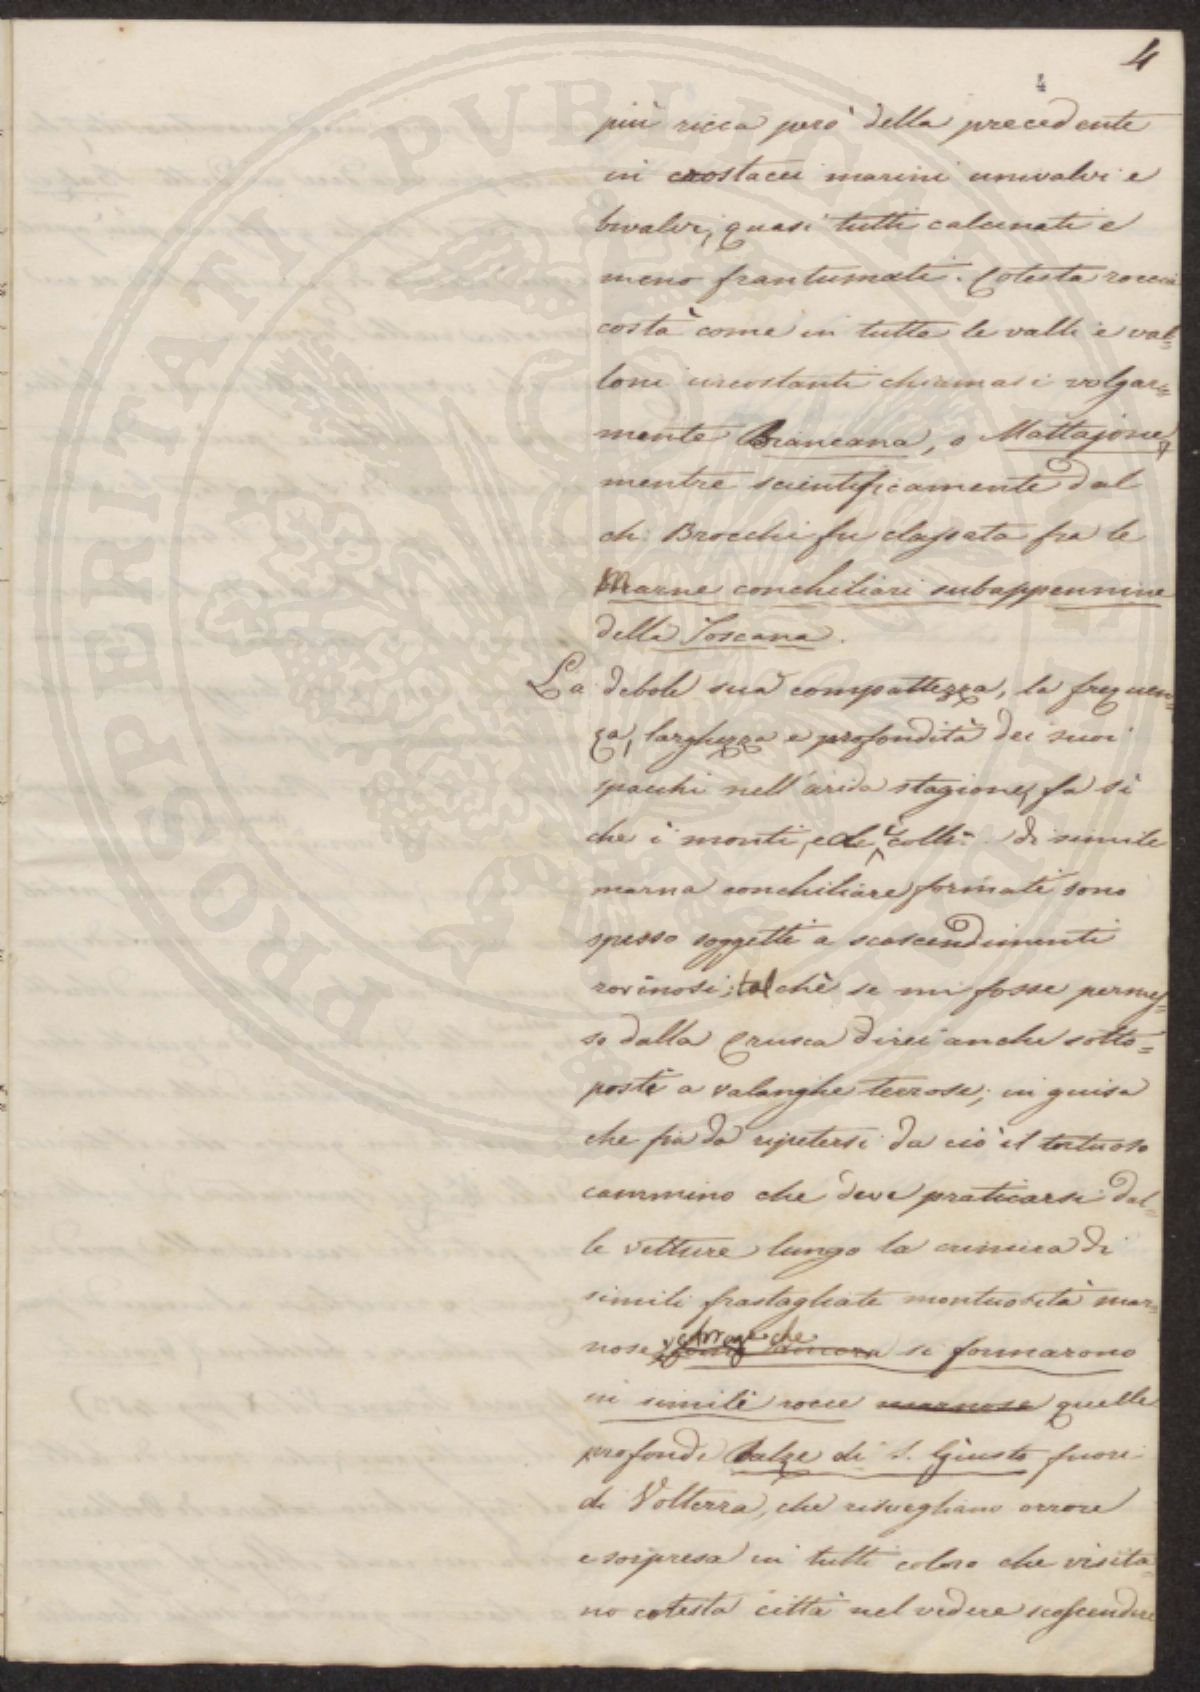 4
4
più ricca però della precedente
in crostacei marini univalvi e
bivalvi, quasi tutti calcinati e
meno frantumati. Cotesta roccia
costà come in tutte le valli e val=
loni circostanti chiamasi volgar=
mente Biancana, o Mattajone,
mentre scientificamente dal
ch. Brocchi fu classata fra le
Marne conchiliari subappennine
della Toscana.
La debole sua compattezza, la frequen=
za, larghezza e profondità dei suoi
spacchi nell'arida stagione, fa sì
che i monti, e i colli di simile
marna conchiliare formati sono
spesso soggetti a scoscendimenti
rovinosi; talchè se mi fosse permes=
so dalla Crusca direi anche sotto=
posti a valanghe terrose; in guisa
che fia da ripetersi da ciò il tortuoso
cammino che deve praticarsi dal=
le vetture lungo la criniera di
simili frastagliate montuosità mar=
nose, che
si formarono
in simili rocce marnose quelle
profonde Balze di S. Giusto fuori
di Volterra, che risvegliano orrore
e sorpresa in tutti coloro che visita=
no cotesta città nel vedere scoscendere
PROSPERITATI PVBLICAE